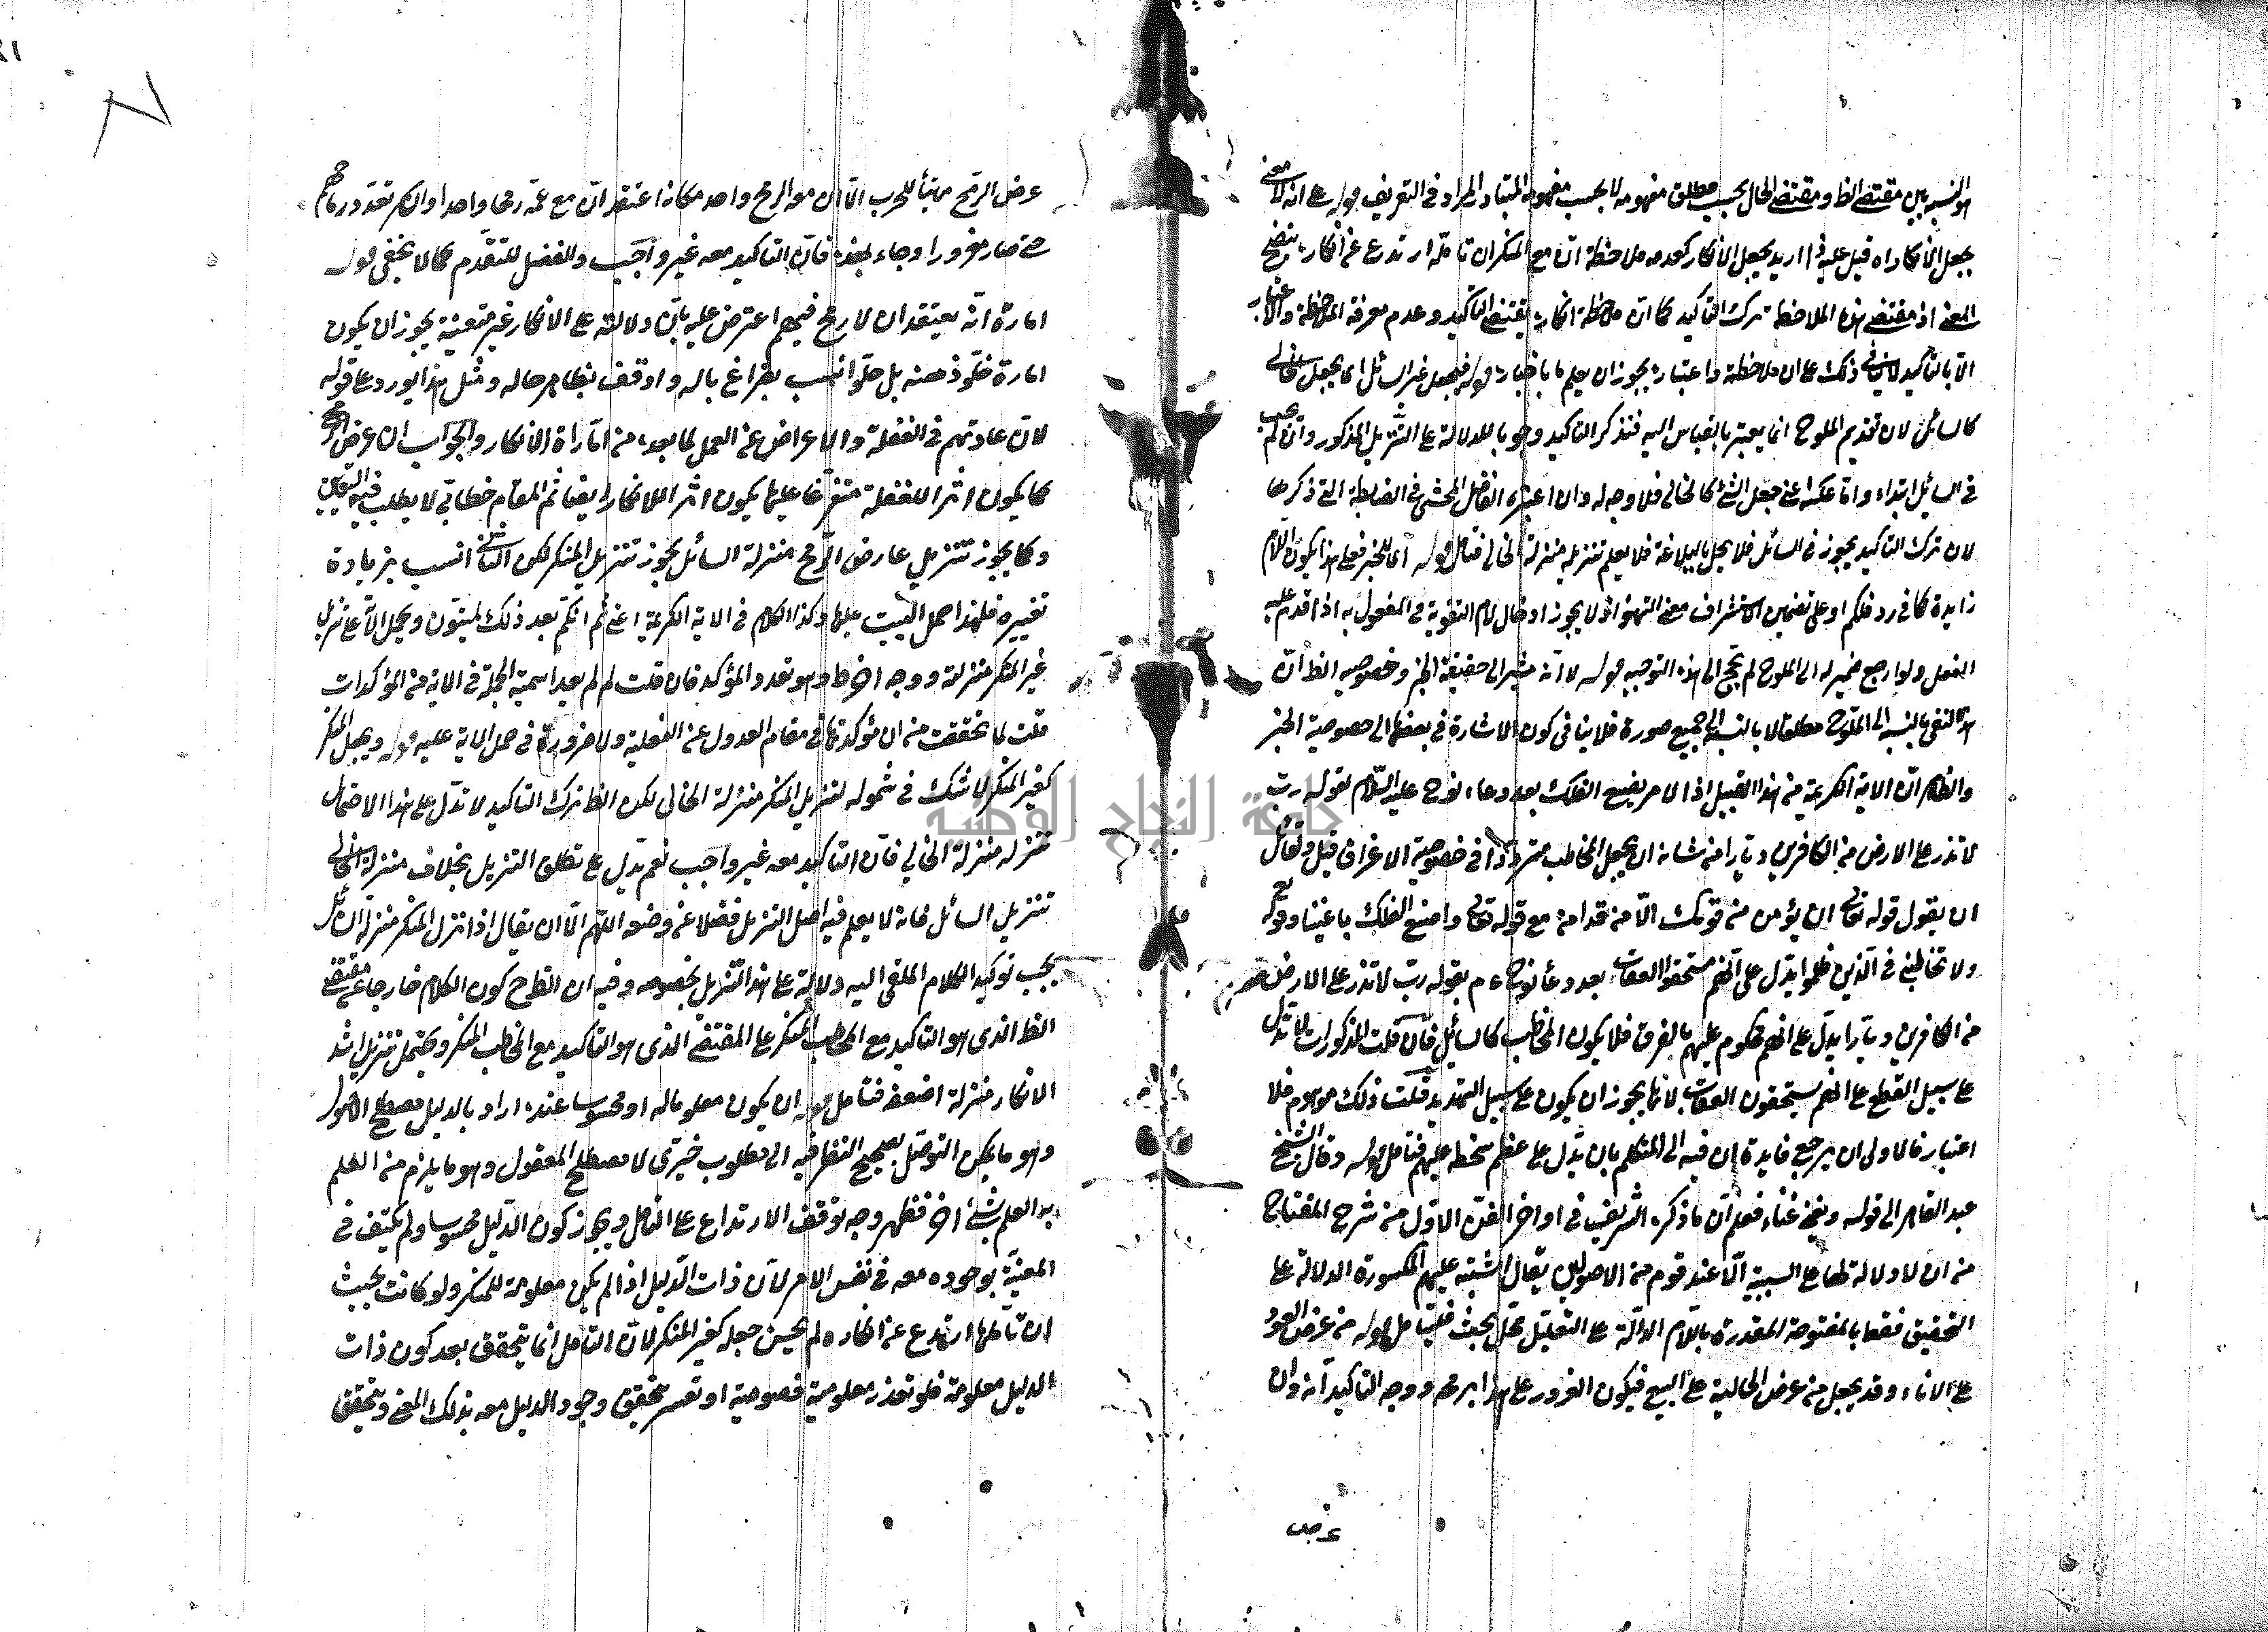 هو النسبة بين مقتضى الظ ومقتضى الحال بحسب مطلق مفهومه لا بحسب مفهومه المتبادر المراد في التعريف قوله على انه لا معنى
بجعل الانكار اه قيل عليه اذا اريد بجعل الانكار كعدمه ملاحظة ان مع المنكر ان تأمله ارتدع عن انكاره يتضح
المعنى اذ مقتضى هذه الملاحظة ترك التأكيد كما ان ملاحظة انكاره يقتضى التأكيد وعدم معرفة الملاحظة والاعتبار
الا بالتأكيد لا ينافي ذلك على ان ملاحظة واعتباره يجوز ان يعلم باخباره قوله فيجعل غير السائل اى يجعل الخالى
كالسائل لان تقديم الملوح انما يعتبر بالقياس اليه فتذكر التأكيد وجوبا للدلالة على التنزيل المذكور وان لم يجب
في السائل ابتداء واما عكسه اعنى جعل السائل كالخالى فلا وجه له وان اعتبره الفاضل المحشى في الضابطة التى ذكرها
لان ترك التأكيد يجوز في السائل فلا يخل بالبلاغة فلا يعلم تنزيله منزلة الخالى فتأمل قوله اى للخبر فعلى هذا يكون اللام
زايدة كما في ردف لكم او على تضمين الاستشراف معنى التهيؤ اذ لا يجوز ادخال لام التقوية في المفعول به اذا قدم عليه
الفعل ولو ارجع ضميره الى الملوح لم يحتج الى هذه التوجيه قوله لا انه مشير الى حقيقة الخبر وخصوصيه الظ ان
هذا النفى بالنسبة الى الملوح مطلقا لا بالنسبة الى جميع صوره فلا ينافى كون الاشارة في بعضها الى خصوصية الخبر
والظاهر ان الاية الكريمة من هذا القبيل اذ الامر بصنع الفلك بعد دعاء نوح عليه السلام بقوله رب
لا تذر على الارض من الكافرين ديارا من شانه ان يجعل المخاطب مترددا في خصوصية الاغراق قيل ولقائل
ان يقول قوله تعالى لن يؤمن من قومك الا من قد امن مع قوله تعالى واصنع الفلك باعيننا وقوله
ولا تخاطبنى في الذين ظلموا يدل على انهم مستحقوا العقاب بعد دعا نوح ء م بقوله رب لا تذر على الارض
من الكافرين ديارا يدل على انهم محكوم عليهم بالغرق فلا يكون المخاطب كالسائل فان قلت المذكورات لا تدل
على سبيل القطع على انهم يستحقون العقاب لانها يجوز ان يكون على سبيل التهديد قلت ذلك موهوم فلا
اعتبار فالاولى ان يرجع فايدة ان فيه الى المتكلم بان تدل على عظم سخطه عليهم فتأمل قوله وقال الشيخ
عبد القاهر الى قوله ويغنى غناء فعلم ان ما ذكره الشريف في اواخر الفن الاول من شرح المفتاح
من ان لا دلالة لها على السببية الا عند قوم من الاصوليين يقال اشتبه عليهم المكسورة الدلالة على
التحقيق فقط بالمفتوحة المقدرة باللام الدالة على التعليل محل بحث فليتأمل قوله من عرض العود
على الاناء وقد يجعل من عرض الجالية على البيع فيكون الغرور على هذا برمحه ووجه التأكيد انه وان
عرض
عرض الرمح متهيأ للحرب الا ان معه الرمح واحد مكانه اعتقد ان مع عمه رمحا واحدا وان لم تعدد رماحهم
حتى صار مغرورا وجاء بمفرده فان التأكيد معه غير واجب والفضل للمتقدم كما لا يخفى قوله
امارة انه يعتقد ان لا رمح فيهم اعترض عليه بان دلالته على الانكار غير متعينة يجوز ان يكون
امارة خلو ذهنه بل خلو انسب بفراغ باله واوقف بظاهر حاله ومثل هذا يورد على قوله
لان عادتهم في الغفلة والاعراض عن العمل لما بعده من امارة الانكار والجواب ان عرض الرمح
كما يكون اثرا للغفلة متفرعا عليها يكون اثرا للانكار ايضا ثم المقام خطابى لا يطلب فيه اليقين
وكما يجوز تنزيل عارض الرمح منزلة السائل يجوز تنزيل المنكر لكن الثانى انسب بزيادة
تغييره فلهذا حمل البيت عليها وكذا الكلام في الاية الكريمة اعنى ثم انكم بعد ذلك لميتون ويحمل الآ على تنزيل
غير المنكر منزلة ووجه اخر ط وهو تعدد المؤكد فان قلت لم لم يعد اسمية الجملة في الاية من المؤكدات
قلت لما تحققت من ان مؤكدتها في مقام العدول عن الفعلية ولا ضرورة في حمل الاية عليه قوله ويجعل المنكر
كغير المنكر لا شك في شموله لتنزيل المنكر منزلة الخالى لكن الظ ترك التأكيد لا تدل على هذا الاحتمال
تنزله منزلة الخالى فان التأكيد معه غير واجب نعم تدل على مطلق التنزيل بخلاف منزلة الخالى
تنزيل السائل فانه لا يعلم فيه اصل التنزيل فضلا عن وضعه اللهم الا ان يقال اذا نزل المنكر منزلة السائل
يجب توكيد الكلام الملقى اليه دلالة على هذا التنزيل بخصوصه وفيه ان الظ ح كون الكلام خارجا عن مقتضى
الظ الذى هو التأكيد مع المخاطب المنكر على المقتضى الذى هو التأكيد مع المخاطب المنكر ويحتمل تنزيل اشد
الانكار منزلة اضعفه فتأمل قوله ان يكون معلوما له او محسوسا عنده اراد بالدليل مصطلح الاصول
وهو ما يمكن التوصل بصحيح النظر فيه الى مطلوب خبرى لا مصطلح المعقول وهو ما يلزم من العلم
به العلم بشئ اخر فظهر وجه توقف الارتداع على التأمل ويجوز كون الدليل محسوسا ولم يكتف في
المعيّة بوجوده معه في نفس الامر لان ذات الدليل اذا لم يكن معلومة للمنكر ولو كانت بحيث
ان تأملها ارتدع عن انكاره لم يحسن جعله كغير المنكر لان التأمل انما يتحقق بعد كون ذات
الدليل معلومة فلو تعذر معلومية خصوصية او تعسر تحقيق وجود الدليل معه بذلك المعنى وتحقق
جامعة النجاح الوطنية